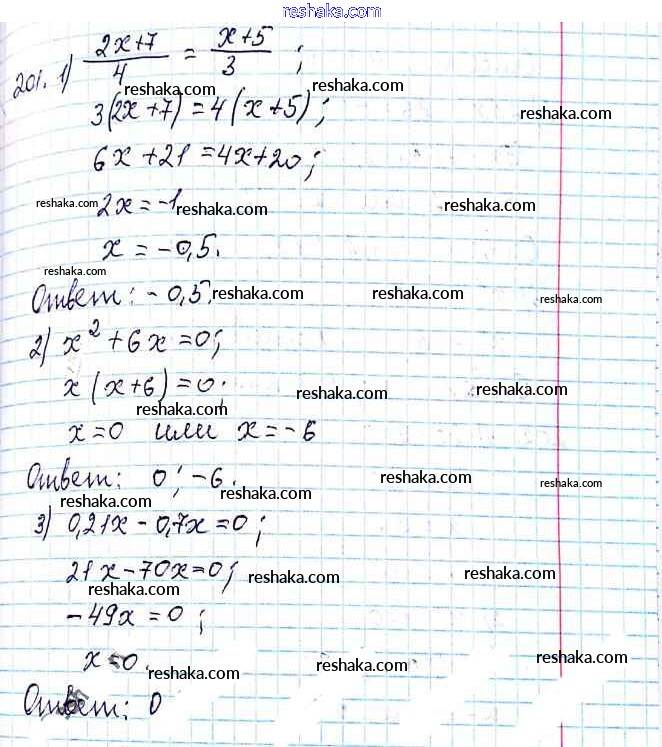 reshaka.com
201. 1) (2x+7)/4 = (x+5)/3 ;
reshaka.com reshaka.com
3(2x+7)=4(x+5); reshaka.com
6x+21=4x+20;
reshaka.com 2x=-1 reshaka.com reshaka.com
x=-0,5.
reshaka.com
Ответ: -0,5. reshaka.com reshaka.com reshaka.com
2) x²+6x=0;
x(x+6)=0; reshaka.com reshaka.com
reshaka.com
x=0 или x=-6
Ответ: 0; -6. reshaka.com reshaka.com
reshaka.com
3) 0,21x-0,7x=0;
21x-70x=0; reshaka.com reshaka.com
-49x=0;
x=0. reshaka.com reshaka.com reshaka.com
Ответ: 0